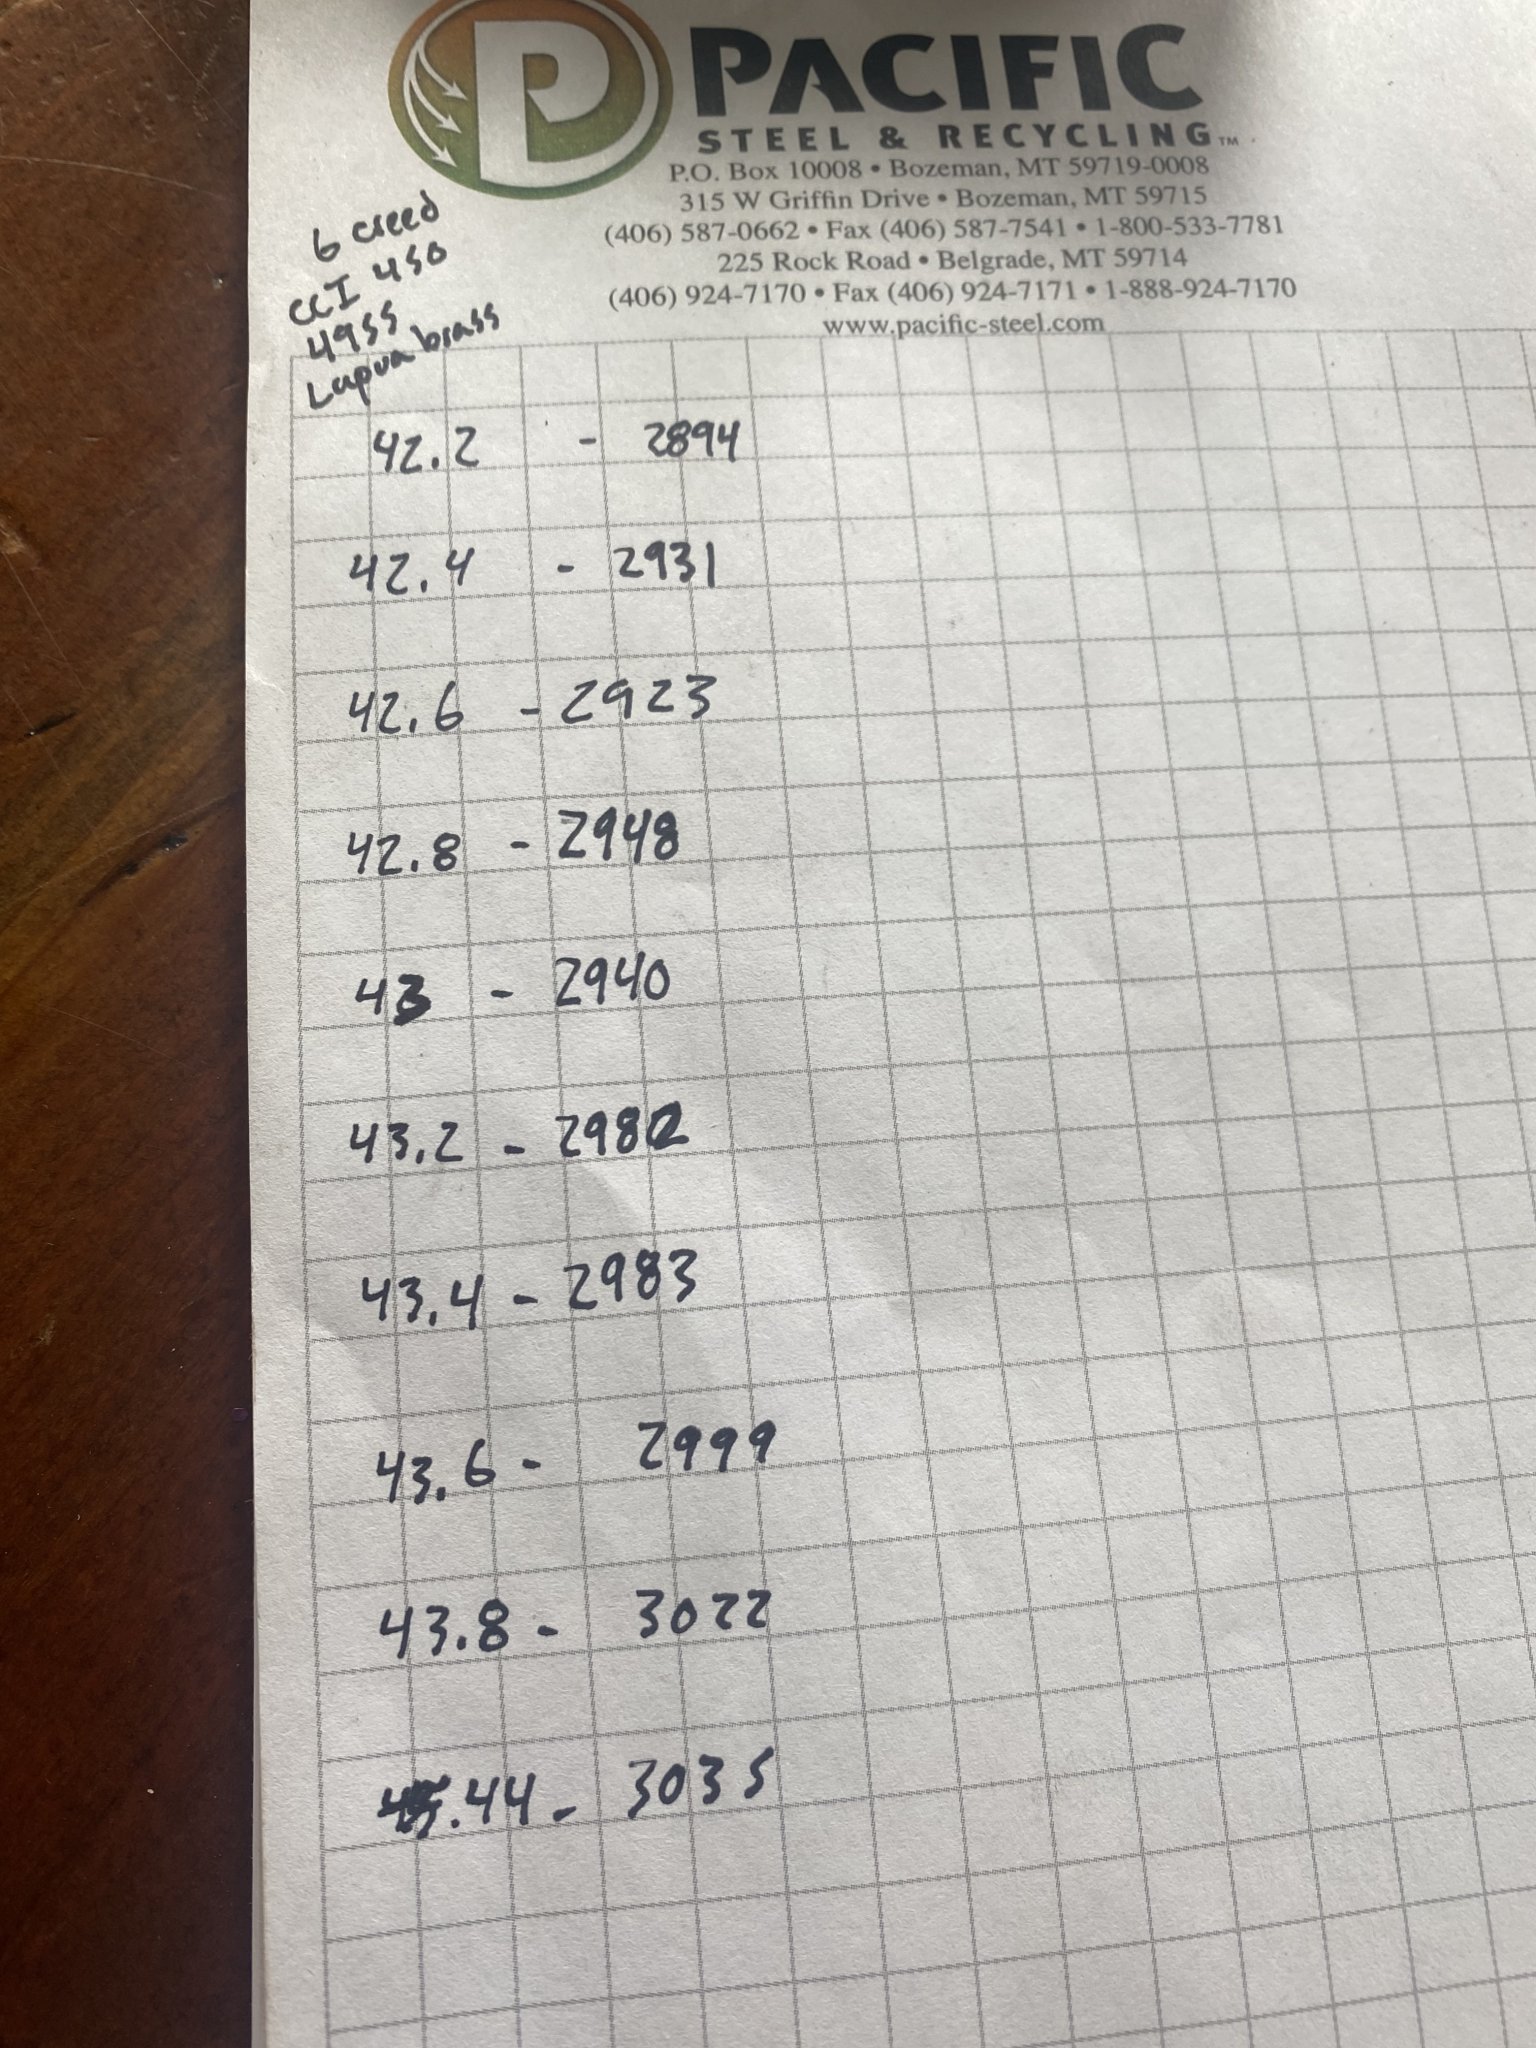 PACIFIC
STEEL & RECYCLING™
P.O. Box 10008 • Bozeman, MT 59719-0008
315 W Griffin Drive • Bozeman, MT 59715
(406) 587-0662 • Fax (406) 587-7541 • 1-800-533-7781
225 Rock Road • Belgrade, MT 59714
(406) 924-7170 • Fax (406) 924-7171 • 1-888-924-7170
www.pacific-steel.com
6 creed
CCI 450
4955
Lapua brass
42.2 - 2894
42.4 - 2931
42.6 - 2923
42.8 - 2948
43 - 2940
43.2 - 2982
43.4 - 2983
43.6 - 2999
43.8 - 3022
44 - 3035